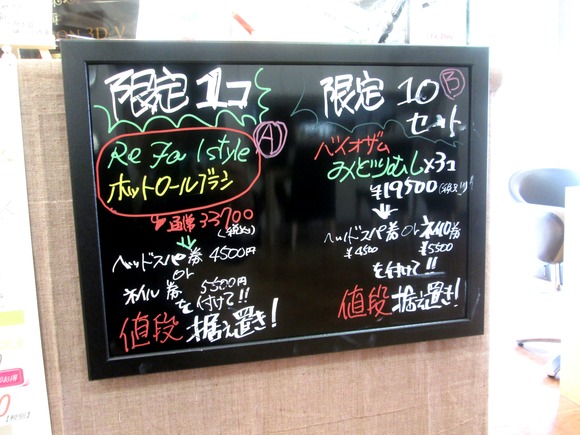 限定 1コ
A
ReFa Istyle
ホットロールブラシ
通常 33700
(税込)
ヘッドスパ券 4500円
or
ネイル券 5500円
を付けて!!
値段据え置き!
限定 10
B
セット
バイオザム
みどりむし×3コ
¥19500
ヘッドスパ券 or ネイル券
¥4500 ¥5500
を付けて!!
値段据え置き!